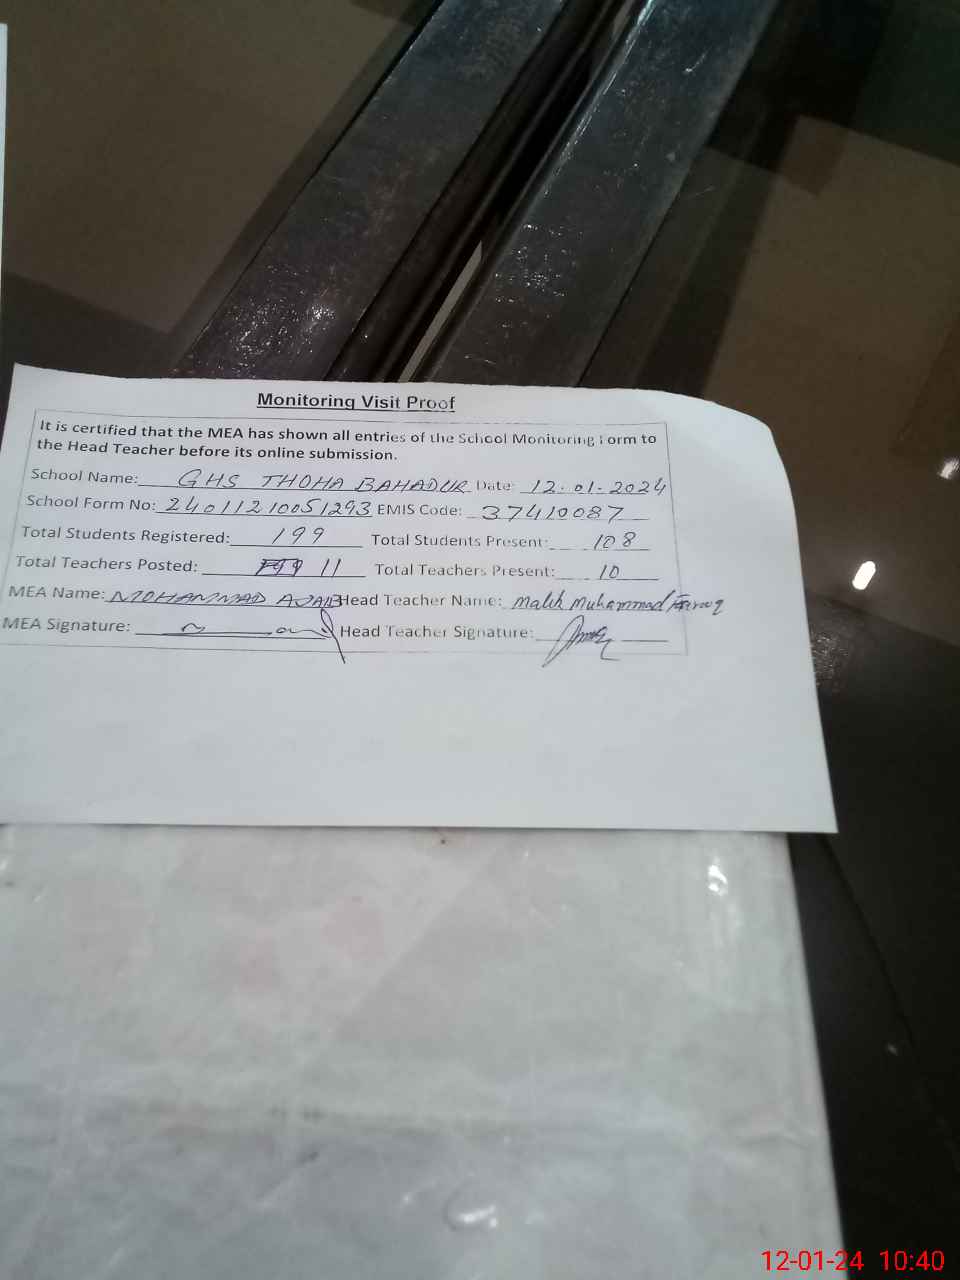 Monitoring Visit Proof
It is certified that the MEA has shown all entries of the School Monitoring Form to
the Head Teacher before its online submission.
School Name: GHS THOHA BAHADUR Date: 12.01.2024
School Form No: 24011210051293 EMIS Code: 37410087
Total Students Registered: 199 Total Students Present: 108
Total Teachers Posted: 11 Total Teachers Present: 10
MEA Name: MOHAMMAD AJAIB Head Teacher Name: Malik Muhammad Farooq
MEA Signature: Head Teacher Signature:
12-01-24 10:40